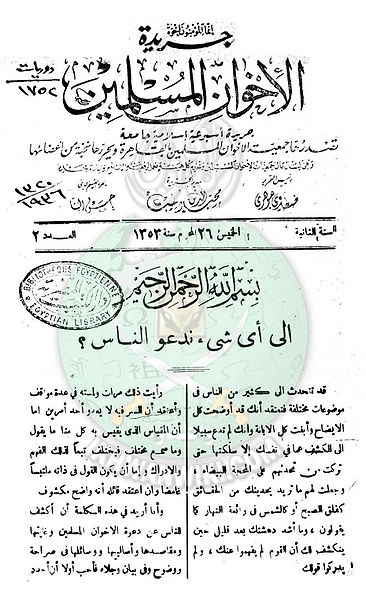 إنما المؤمنون إخوة
جريدة
الاخوان المسلمين
دوريات
١٧٥٢
جريدة أسبوعية إسلامية جامعة
تصدرها جمعية الاخوان المسلمين بالقاهرة ويحررها نخبة من أعضائها
طنطاوي جوهري
محب الدين الخطيب
السنة الثانية
الخميس ٢٦ المحرم سنة ١٣٥٣
العدد ٢
BIBLIOTHEQUE EGYPTIENNE
EGYPTIAN LIBRARY
بسم الله الرحمن الرحيم
الى أى شىء ندعو الناس ؟
قد تتحدث الى كثير من الناس فى
موضوعات مختلفة فتعتقد أنك قد أوضحت كل
الايضاح وأبنت كل الابانة وانك لم تدع سبيلا
الى الكشف عما فى نفسك إلا سلكتها حتى
تركت من تحدثهم على المحجة البيضاء ،
وجعلت لهم ما تريد بحديثك من الحقائق
كفلق الصبح أو كالشمس فى رائعة النهار كما
يقولون ، وما أشد دهشتك بعد قليل حين
ينكشف لك أن القوم لم يفهموا عنك ، ولم
يدركوا قولك
رأيت ذلك مرات ولمسته فى عدة مواقف
وأعتقد أن السر فيه لا يعدو أحد أمرين اما
أن المقياس الذى يقيس به كل منا ما يقول
وما يسمع مختلف فيختلف تبعا لذلك الفهم
والادراك ، وإما أن يكون القول فى ذاته ملتبسا
غامضا وان اعتقد قائله أنه واضح مكشوف
وأنا أريد فى هذه الكلمة أن أكشف
للناس عن دعوة الاخوان المسلمين وغايتها
ومقاصدها وأساليبها ووسائلها فى صراحة
ووضوح وفى بيان وجلاء فأحب أولا أن أحدد